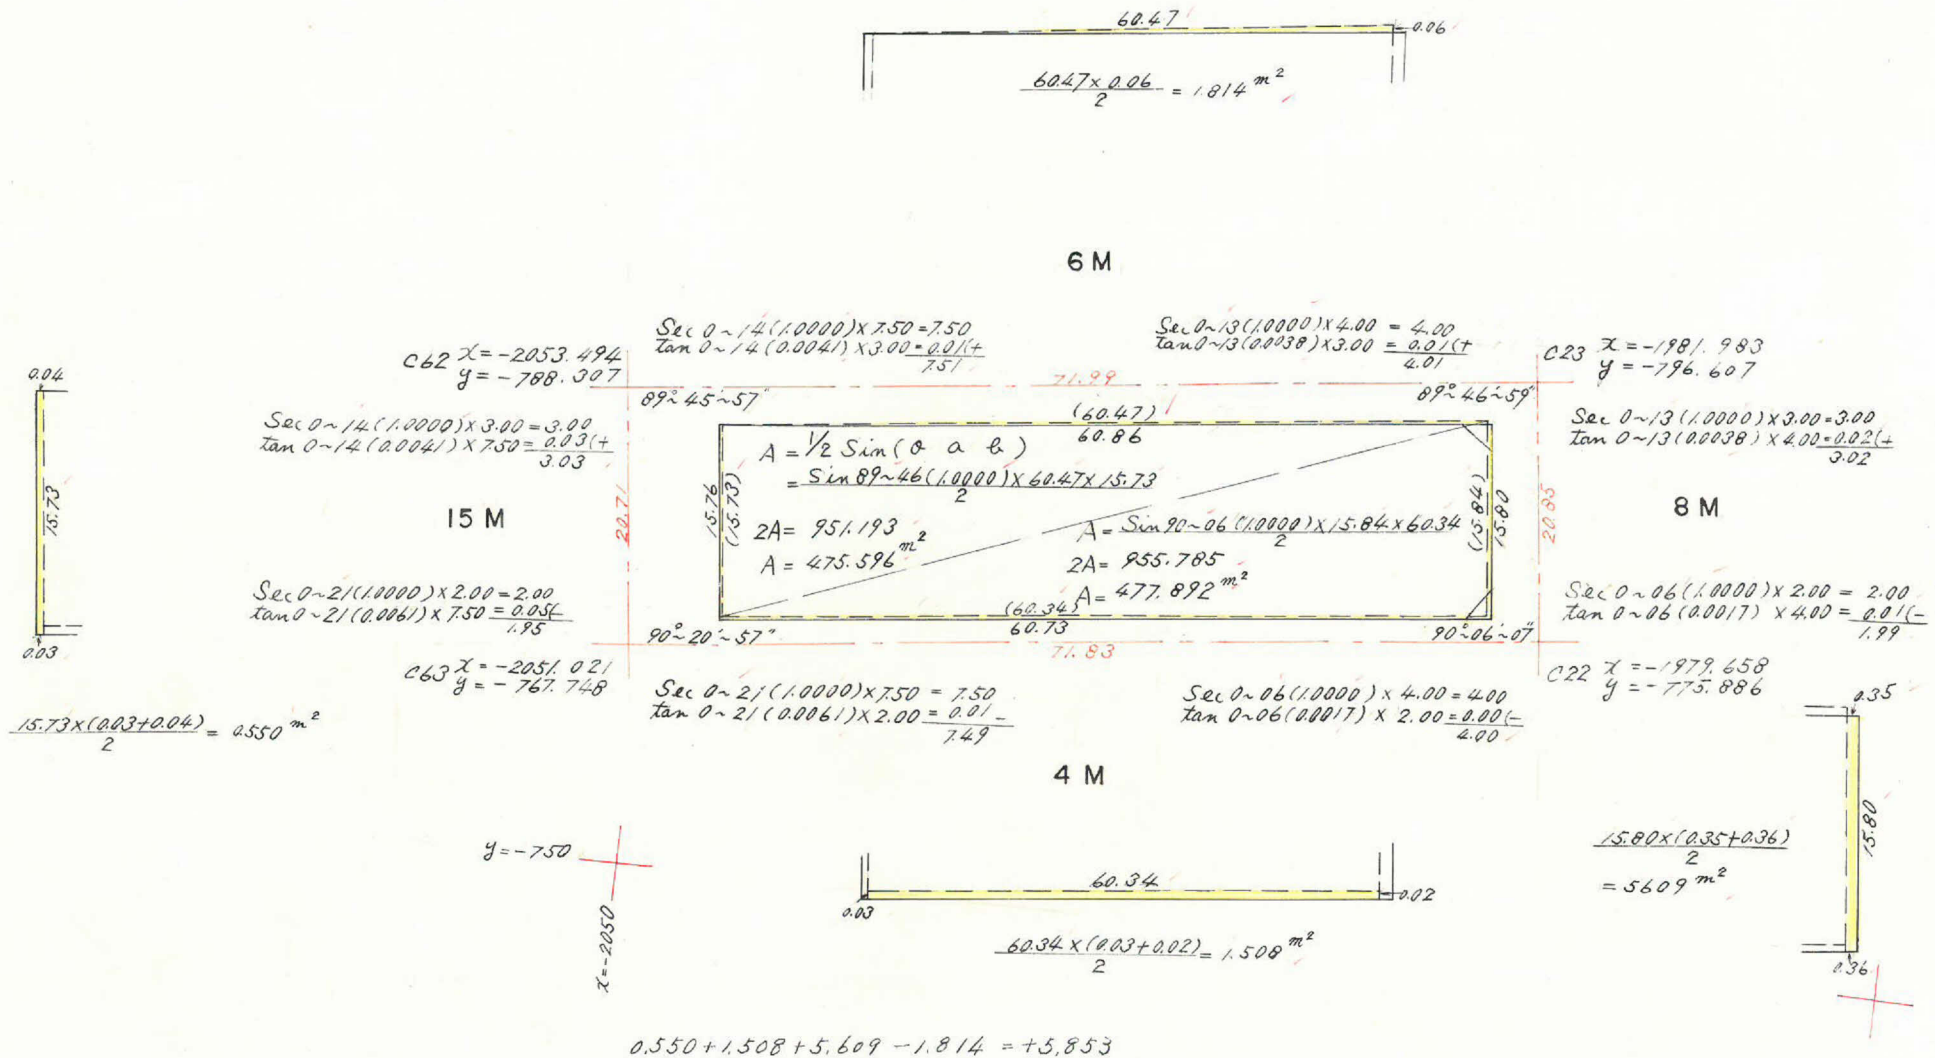 60.47
0.06
60.47 x 0.06 / 2 = 1.814 m²
6 M
Sec 0~14 (1.0000) x 7.50 = 7.50
tan 0~14 (0.0041) x 3.00 = 0.01(+
7.51
Sec 0~13 (1.0000) x 4.00 = 4.00
tan 0~13 (0.0038) x 3.00 = 0.01(+
4.01
C62 x = -2053.494
y = -788.307
C23 x = -1981.983
y = -796.607
71.99
89°~45'~57"
89°~46'~59"
0.04
15.73
0.03
Sec 0~14 (1.0000) x 3.00 = 3.00
tan 0~14 (0.0041) x 7.50 = 0.03(+
3.03
(60.47)
60.86
Sec 0~13 (1.0000) x 3.00 = 3.00
tan 0~13 (0.0038) x 4.00 = 0.02(+
3.02
A = 1/2 Sin (θ a b)
= Sin 89~46 (1.0000) x 60.47 x 15.73 / 2
2A = 951.193
A = 475.596 m²
A = Sin 90~06 (1.0000) x 15.84 x 60.34 / 2
2A = 955.785
A = 477.892 m²
15 M
20.71
15.76
(15.73)
(15.84)
15.80
20.85
8 M
Sec 0~21 (1.0000) x 2.00 = 2.00
tan 0~21 (0.0061) x 7.50 = 0.05(-
1.95
Sec 0~06 (1.0000) x 2.00 = 2.00
tan 0~06 (0.0017) x 4.00 = 0.01(-
1.99
(60.34)
60.73
90°~20'~57"
90°~06'~07"
71.83
C63 x = -2051.021
y = -767.748
C22 x = -1979.658
y = -775.886
15.73 x (0.03+0.04) / 2 = 0.550 m²
Sec 0~21 (1.0000) x 7.50 = 7.50
tan 0~21 (0.0061) x 2.00 = 0.01 -
7.49
Sec 0~06 (1.0000) x 4.00 = 4.00
tan 0~06 (0.0017) x 2.00 = 0.00(-
4.00
4 M
0.35
15.80
0.36
15.80 x (0.35+0.36) / 2
= 5609 m²
y = -750
x = -2050
60.34
0.03
0.02
60.34 x (0.03+0.02) / 2 = 1.508 m²
0.550 + 1.508 + 5.609 - 1.814 = +5.853